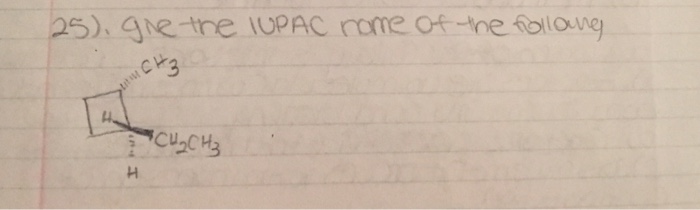 25). give the IUPAC name of the following
CH3
H
CH2CH3
H